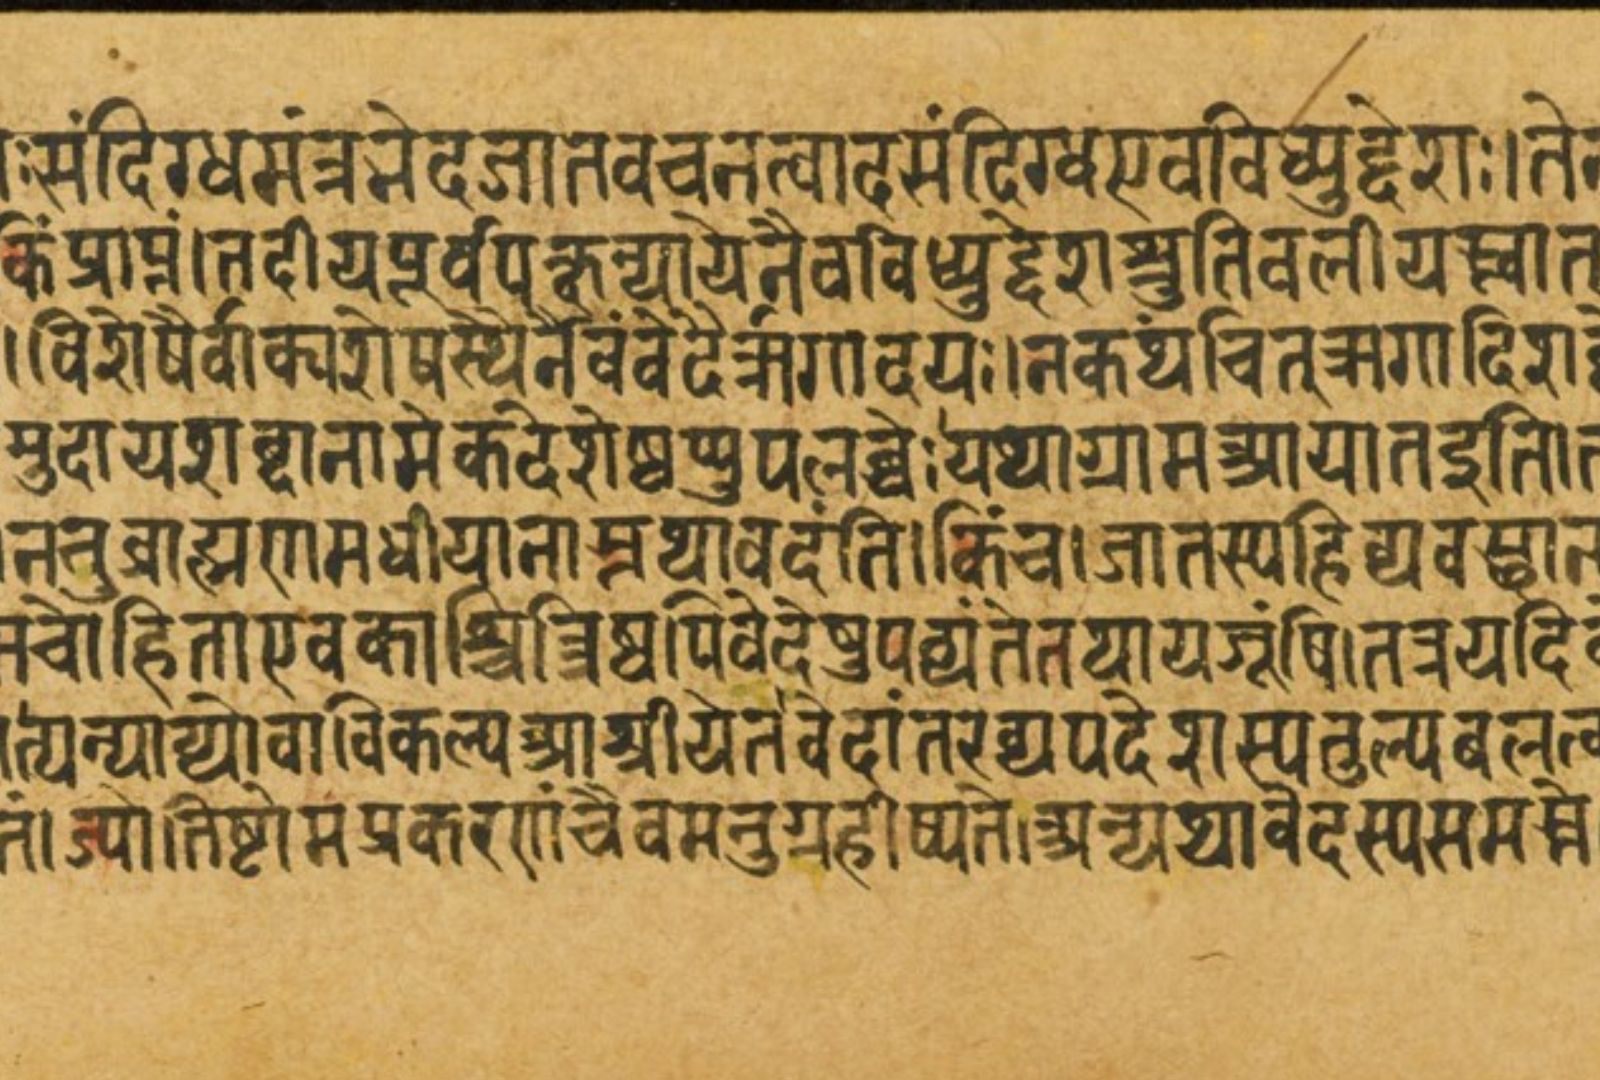 ःसंदिग्धमंत्रनेदजातवचनत्वादसंदिग्धएवविध्युद्देशः।तेन
किंप्राप्तं।तदीयपूर्वपक्षन्यायेनैवविध्युद्देशश्रुतिवलीयस्त्वात
।विशेषैर्वाक्यशेषस्थैर्नैवंवेदैर्ऋगादयः।नकथंचित्ऋगादिशब्दै
मुदायशब्दानामेकदेशेष्वप्युपलब्धेःयथाग्रामआयातइति।त
।ननुब्राह्मणमधीयानास्तथावदंति।किंच।जातस्यहिव्यवस्थान
मचोहिताएवकाश्चित्त्रिष्वपिवेदेषुपठ्यंतेतथायजूंषि।तत्रयदिवे
त्यन्याय्योवाविकल्पआश्रीयेतवेदांतरव्यपदेशस्यतुल्यबलत्व
तं।ज्योतिष्टोमप्रकरणंचैवमनुग्रहीष्यते।अन्यथावेदस्यसमस्ते